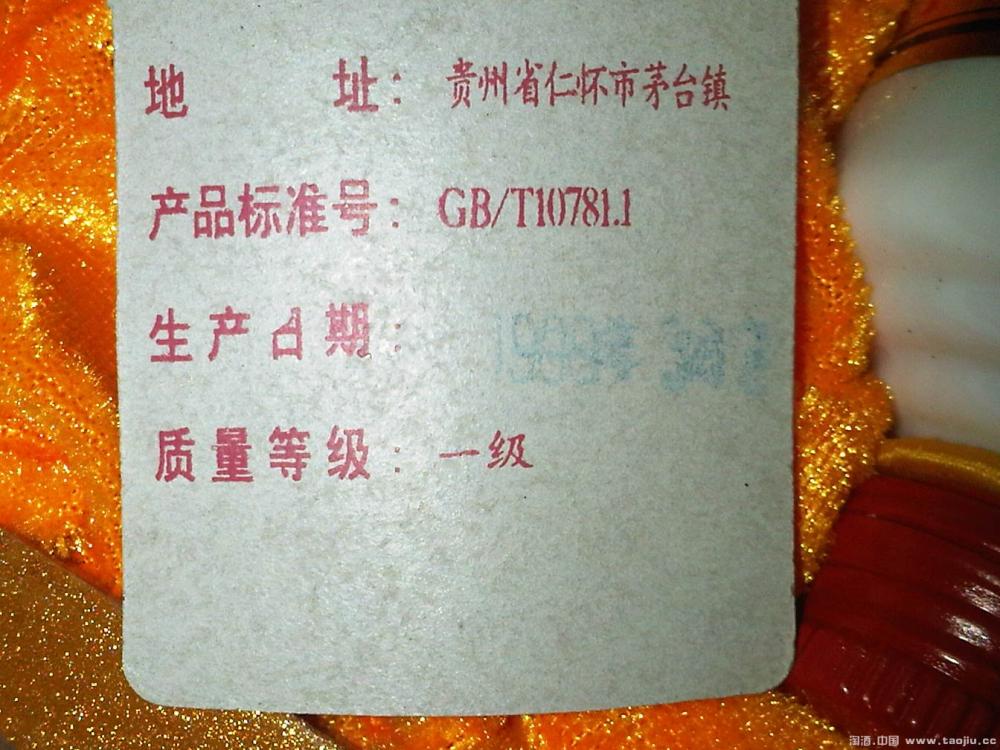 地 址： 贵州省仁怀市茅台镇
产品标准号： GB/T10781.1
生产日期：
质量等级： 一级
淘酒.中国 www.taojiu.cc